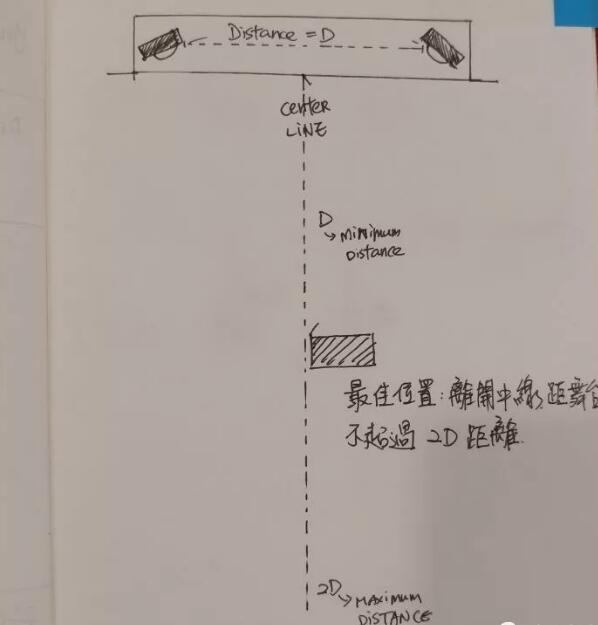 Distance = D
Center
LINE
D
MINIMUM
Distance
最佳位置:離開中線,距舞台
不超過 2D 距離.
2D
MAXIMUM
DISTANCE